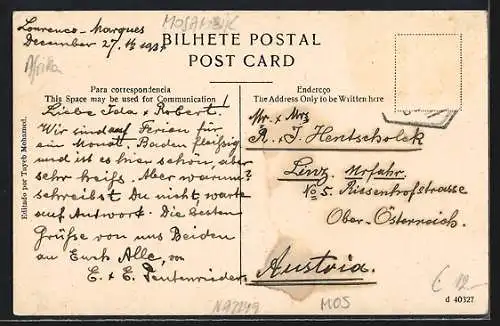 MOSAMBIK
Lourenco-Marques
December 27.
Afrika
BILHETE POSTAL
POST CARD
Para correspondencia
This Space may be used for Communication
Endereço
The Address Only to be Written here
Liebe Ida & Robert.
Wir sind auf Ferien für
ein Monat. Baden fleissig
und ist es hier schön, aber
sehr heiss. Aber warum?
schreibst Du nicht, warte
auf Antwort. Die besten
Grüsse von uns Beiden
an Euch Alle, von
E. & E.
Mr. & Mrs
R. & I. Hentscholek
Linz. Urfahr.
No 5. Riesenhofstrasse
Ober-Österreich.
Austria.
Editado por Tayob Mohamed.
MOS
d 40327